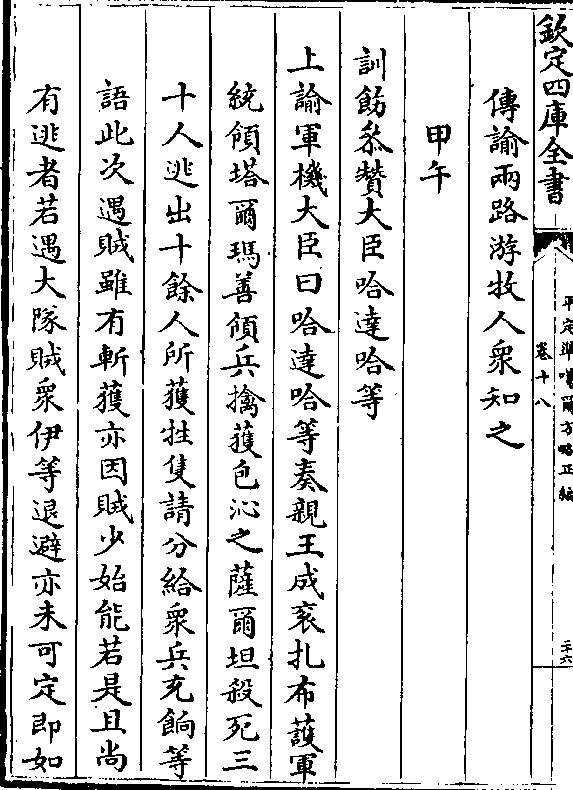 欽定四庫全書
平定準噶爾方略正編
卷十八
二十六
傳諭兩路游牧人衆知之
甲午
訓飭叅贊大臣哈達哈等
上諭軍機大臣曰哈達哈等奏親王成衮扎布護軍
統領塔爾瑪善領兵擒獲包沁之薩爾坦殺死三
十人逃出十餘人所獲牲隻請分給衆兵充餉等
語此次遇賊雖有斬獲亦因賊少始能若是且尚
有逃者若遇大隊賊衆伊等退避亦未可定即如